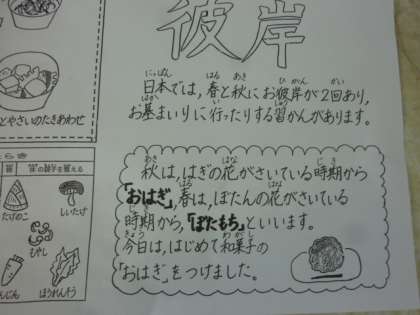 彼岸
日本では,春と秋にお彼岸が2回あり,
お墓まいりに行ったりする習かんがあります。
秋は,はぎの花がさいている時期から
「おはぎ」,春は,ぼたんの花がさいている
時期から,「ぼたもち」といいます。
今日は,はじめて和菓子の
「おはぎ」をつけました。
とやさいのたきあわせ
たけのこ
しいたけ
もやし
んじん
ほうれんそう